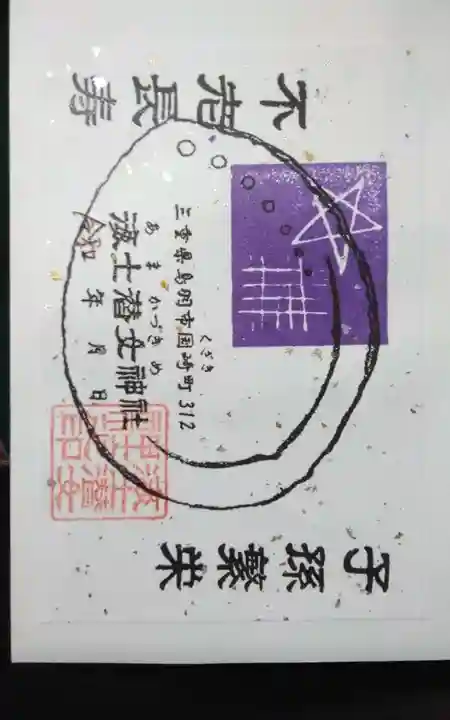 不老長寿
くざき
三重県鳥羽市国崎町312
あまかづきめ
海士潜女神社
令和 年 月 日
子孫繁栄